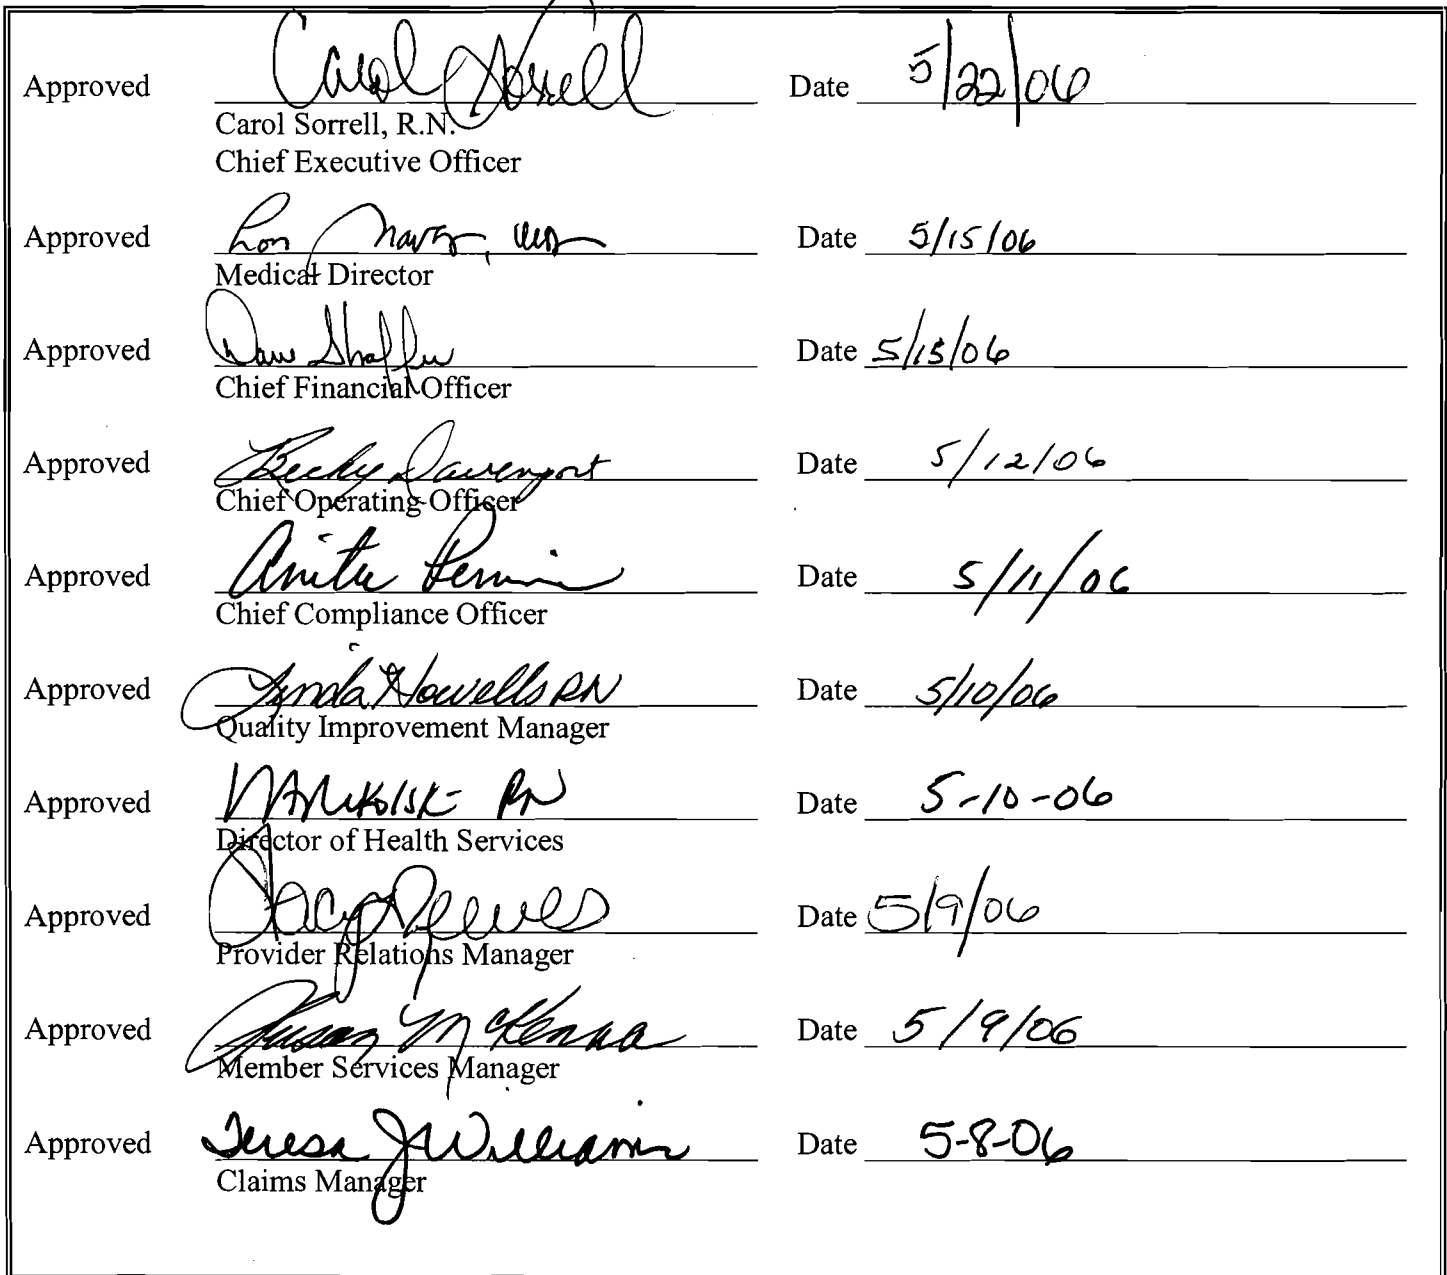 Approved Carol Sorrell Date 5/22/06
Carol Sorrell, R.N.
Chief Executive Officer
Approved Date 5/15/06
Medical Director
Approved Dave Shaffer Date 5/15/06
Chief Financial Officer
Approved Becky Davenport Date 5/12/06
Chief Operating Officer
Approved Anita Date 5/11/06
Chief Compliance Officer
Approved Lynda Howells RN Date 5/10/06
Quality Improvement Manager
Approved RN Date 5-10-06
Director of Health Services
Approved Stacy Reeves Date 5/9/06
Provider Relations Manager
Approved Susan McKenna Date 5/9/06
Member Services Manager
Approved Teresa J Williams Date 5-8-06
Claims Manager